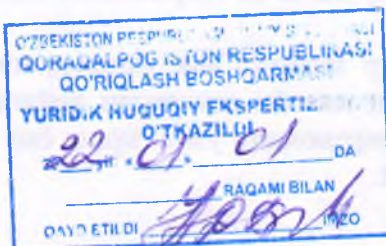 O'ZBEKISTON
QORAQALPOG'ISTON RESPUBLIKASI
QO'RIQLASH BOSHQARMASI
YURIDIK HUQUQIY EKSPERTIZA
O'TKAZILDI
22 01 01 DA
RAQAMI BILAN
QAYD ETILDI IMZO